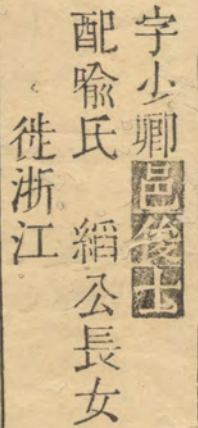 字少卿邑俊士
配喻氏　縚公長女
徙浙江